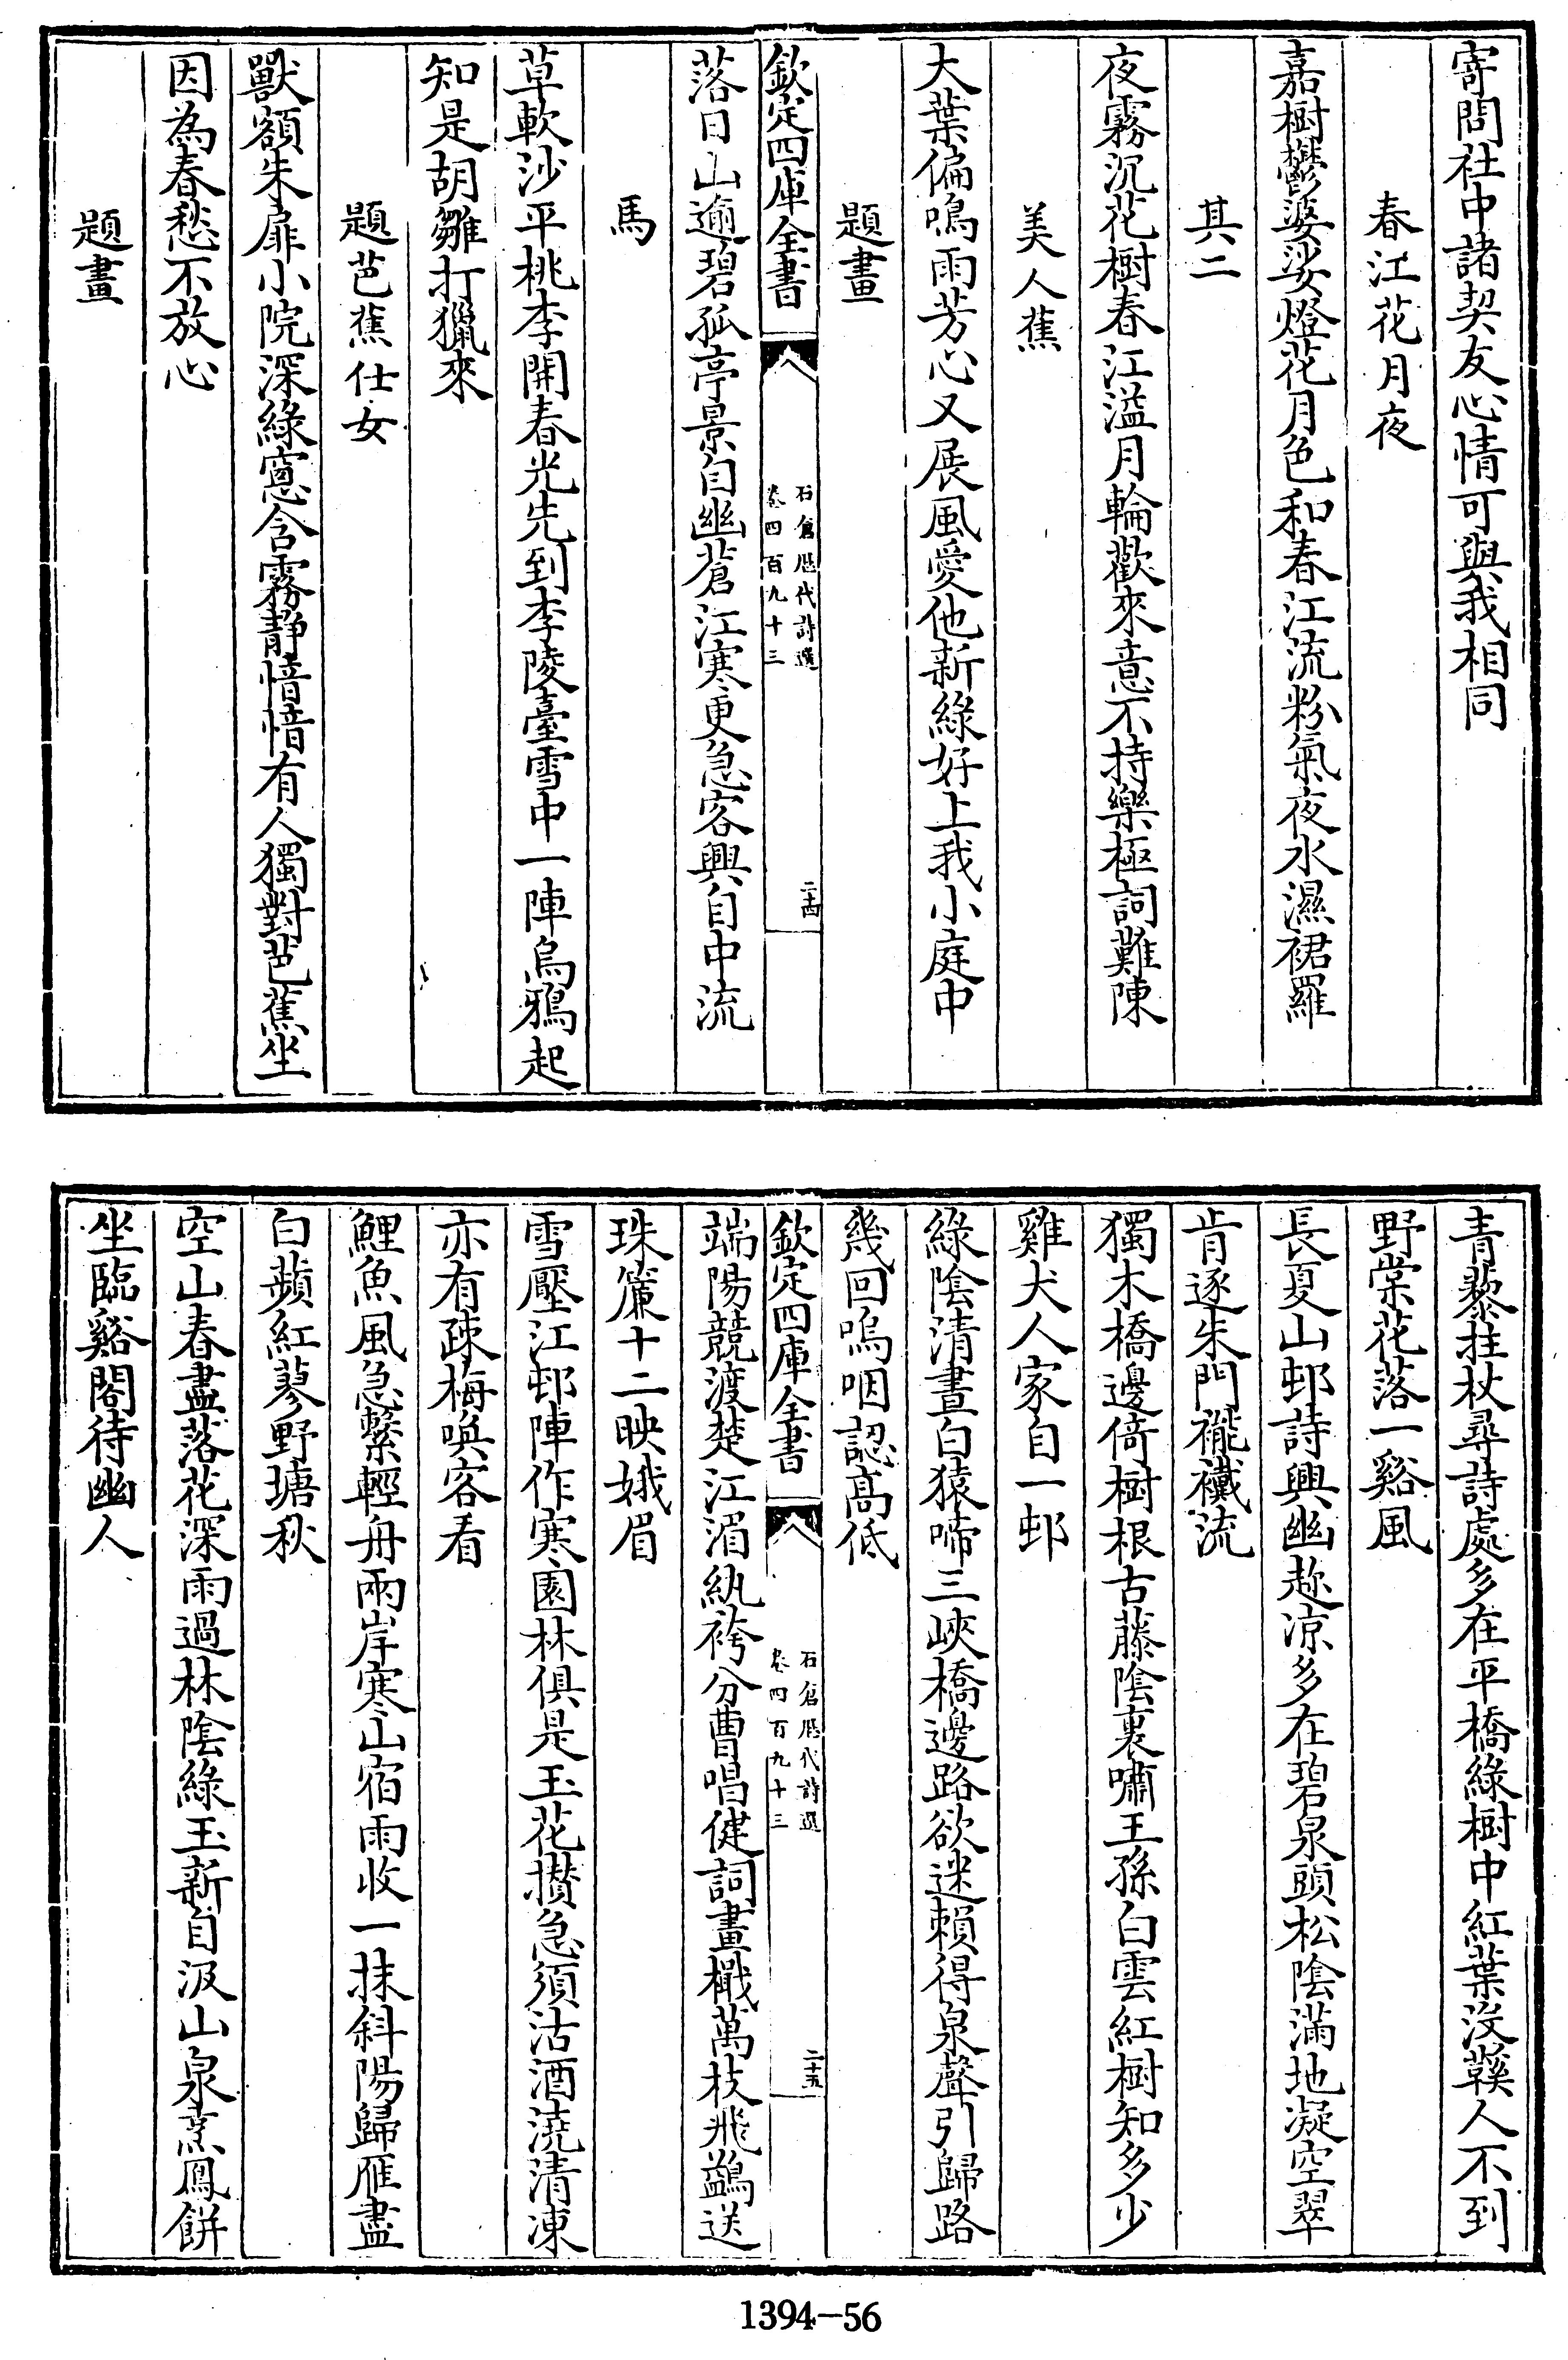 寄問社中諸契友心情可與我相同
春江花月夜
嘉樹鬱婆娑燈花月色和春江流粉氣夜水濕裙羅
其二
夜霧沉花樹春江溢月輪歡來意不持樂極詞難陳
美人蕉
大葉偏鳴雨芳心又展風愛他新綠好上我小庭中
題畫
欽定四庫全書
石倉歷代詩選
卷四百九十三
二十四
落日山逾碧孤亭景自幽蒼江寒更急客興自中流
馬
草軟沙平桃李開春光先到李陵臺雪中一陣烏鴉起
知是胡雛打獵來
題芭蕉仕女
獸額朱扉小院深綠窻含霧靜愔愔有人獨對芭蕉坐
因為春愁不放心
題畫
青藜拄杖尋詩處多在平橋綠樹中紅葉沒鞵人不到
野棠花落一谿風
長夏山邨詩興幽趂涼多在碧泉頭松陰滿地凝空翠
肯逐朱門襹襶流
獨木橋邊倚樹根古藤陰裏嘯王孫白雲紅樹知多少
雞犬人家自一邨
綠陰清晝白猿啼三峽橋邊路欲迷賴得泉聲引歸路
幾回嗚咽認高低
欽定四庫全書
石倉歷代詩選
卷四百九十三
二十五
端陽競渡楚江湄紈袴分曹唱健詞畫檝萬枝飛鷁送
珠簾十二映娥眉
雪壓江邨陣作寒園林俱是玉花攢急須沽酒澆清凍
亦有疎梅喚客看
鯉魚風急繫輕舟兩岸寒山宿雨收一抹斜陽歸雁盡
白蘋紅蓼野塘秋
空山春盡落花深雨過林陰綠玉新自汲山泉烹鳳餅
坐臨谿閣待幽人
1394-56